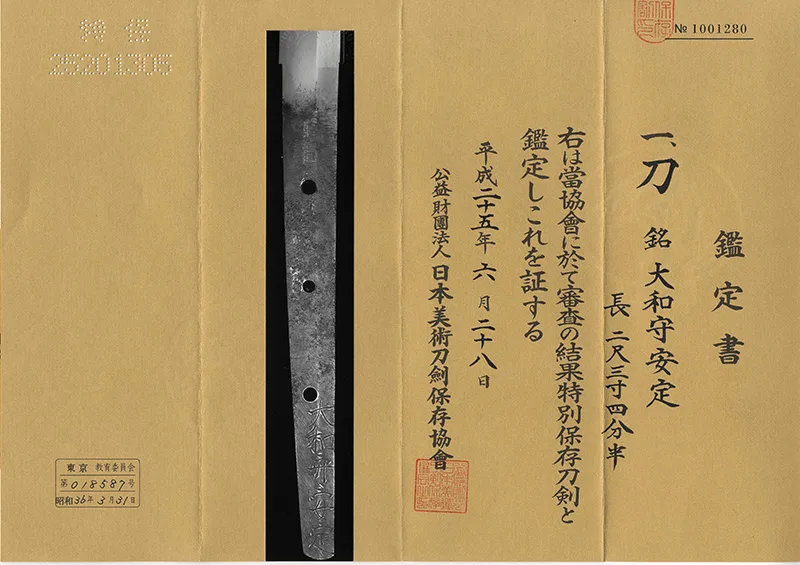 № 1001280
鑑定書
一、刀 銘 大和守安定
長 二尺三寸四分半
右は當協會に於て審査の結果特別保存刀剣と
鑑定しこれを証する
平成二十五年六月二十八日
公益財團法人日本美術刀劍保存協會
大和守安定
特保
25201305
東京 教育委員会
第018587号
昭和36年3月31日